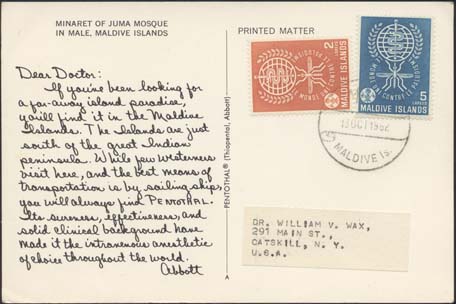 MINARET OF JUMA MOSQUE
IN MALE, MALDIVE ISLANDS
Dear Doctor:
If you've been looking for
a far-away island paradise,
you'll find it in the Maldive
Islands. The Islands are just
south of the great Indian
peninsula. While few westerners
visit here, and the best means of
transportation is by sailing ships,
you will always find PENTOTHAL.
Its sureness, effectiveness, and
solid clinical background have
made it the intravenous anesthetic
of choice throughout the world.
Abbott
PENTOTHAL® (Thiopental, Abbott)
A
PRINTED MATTER
2
MALDIVE ISLANDS
LE MONDE CONTRE LE PALUDISME
5
LAREES
MALDIVE ISLANDS
LE MONDE CONTRE LE PALUDISME
13 OCT 1962
MALDIVE IS.
DR. WILLIAM V. WAX,
291 MAIN ST.,
CATSKILL, N. Y.
U.S.A.